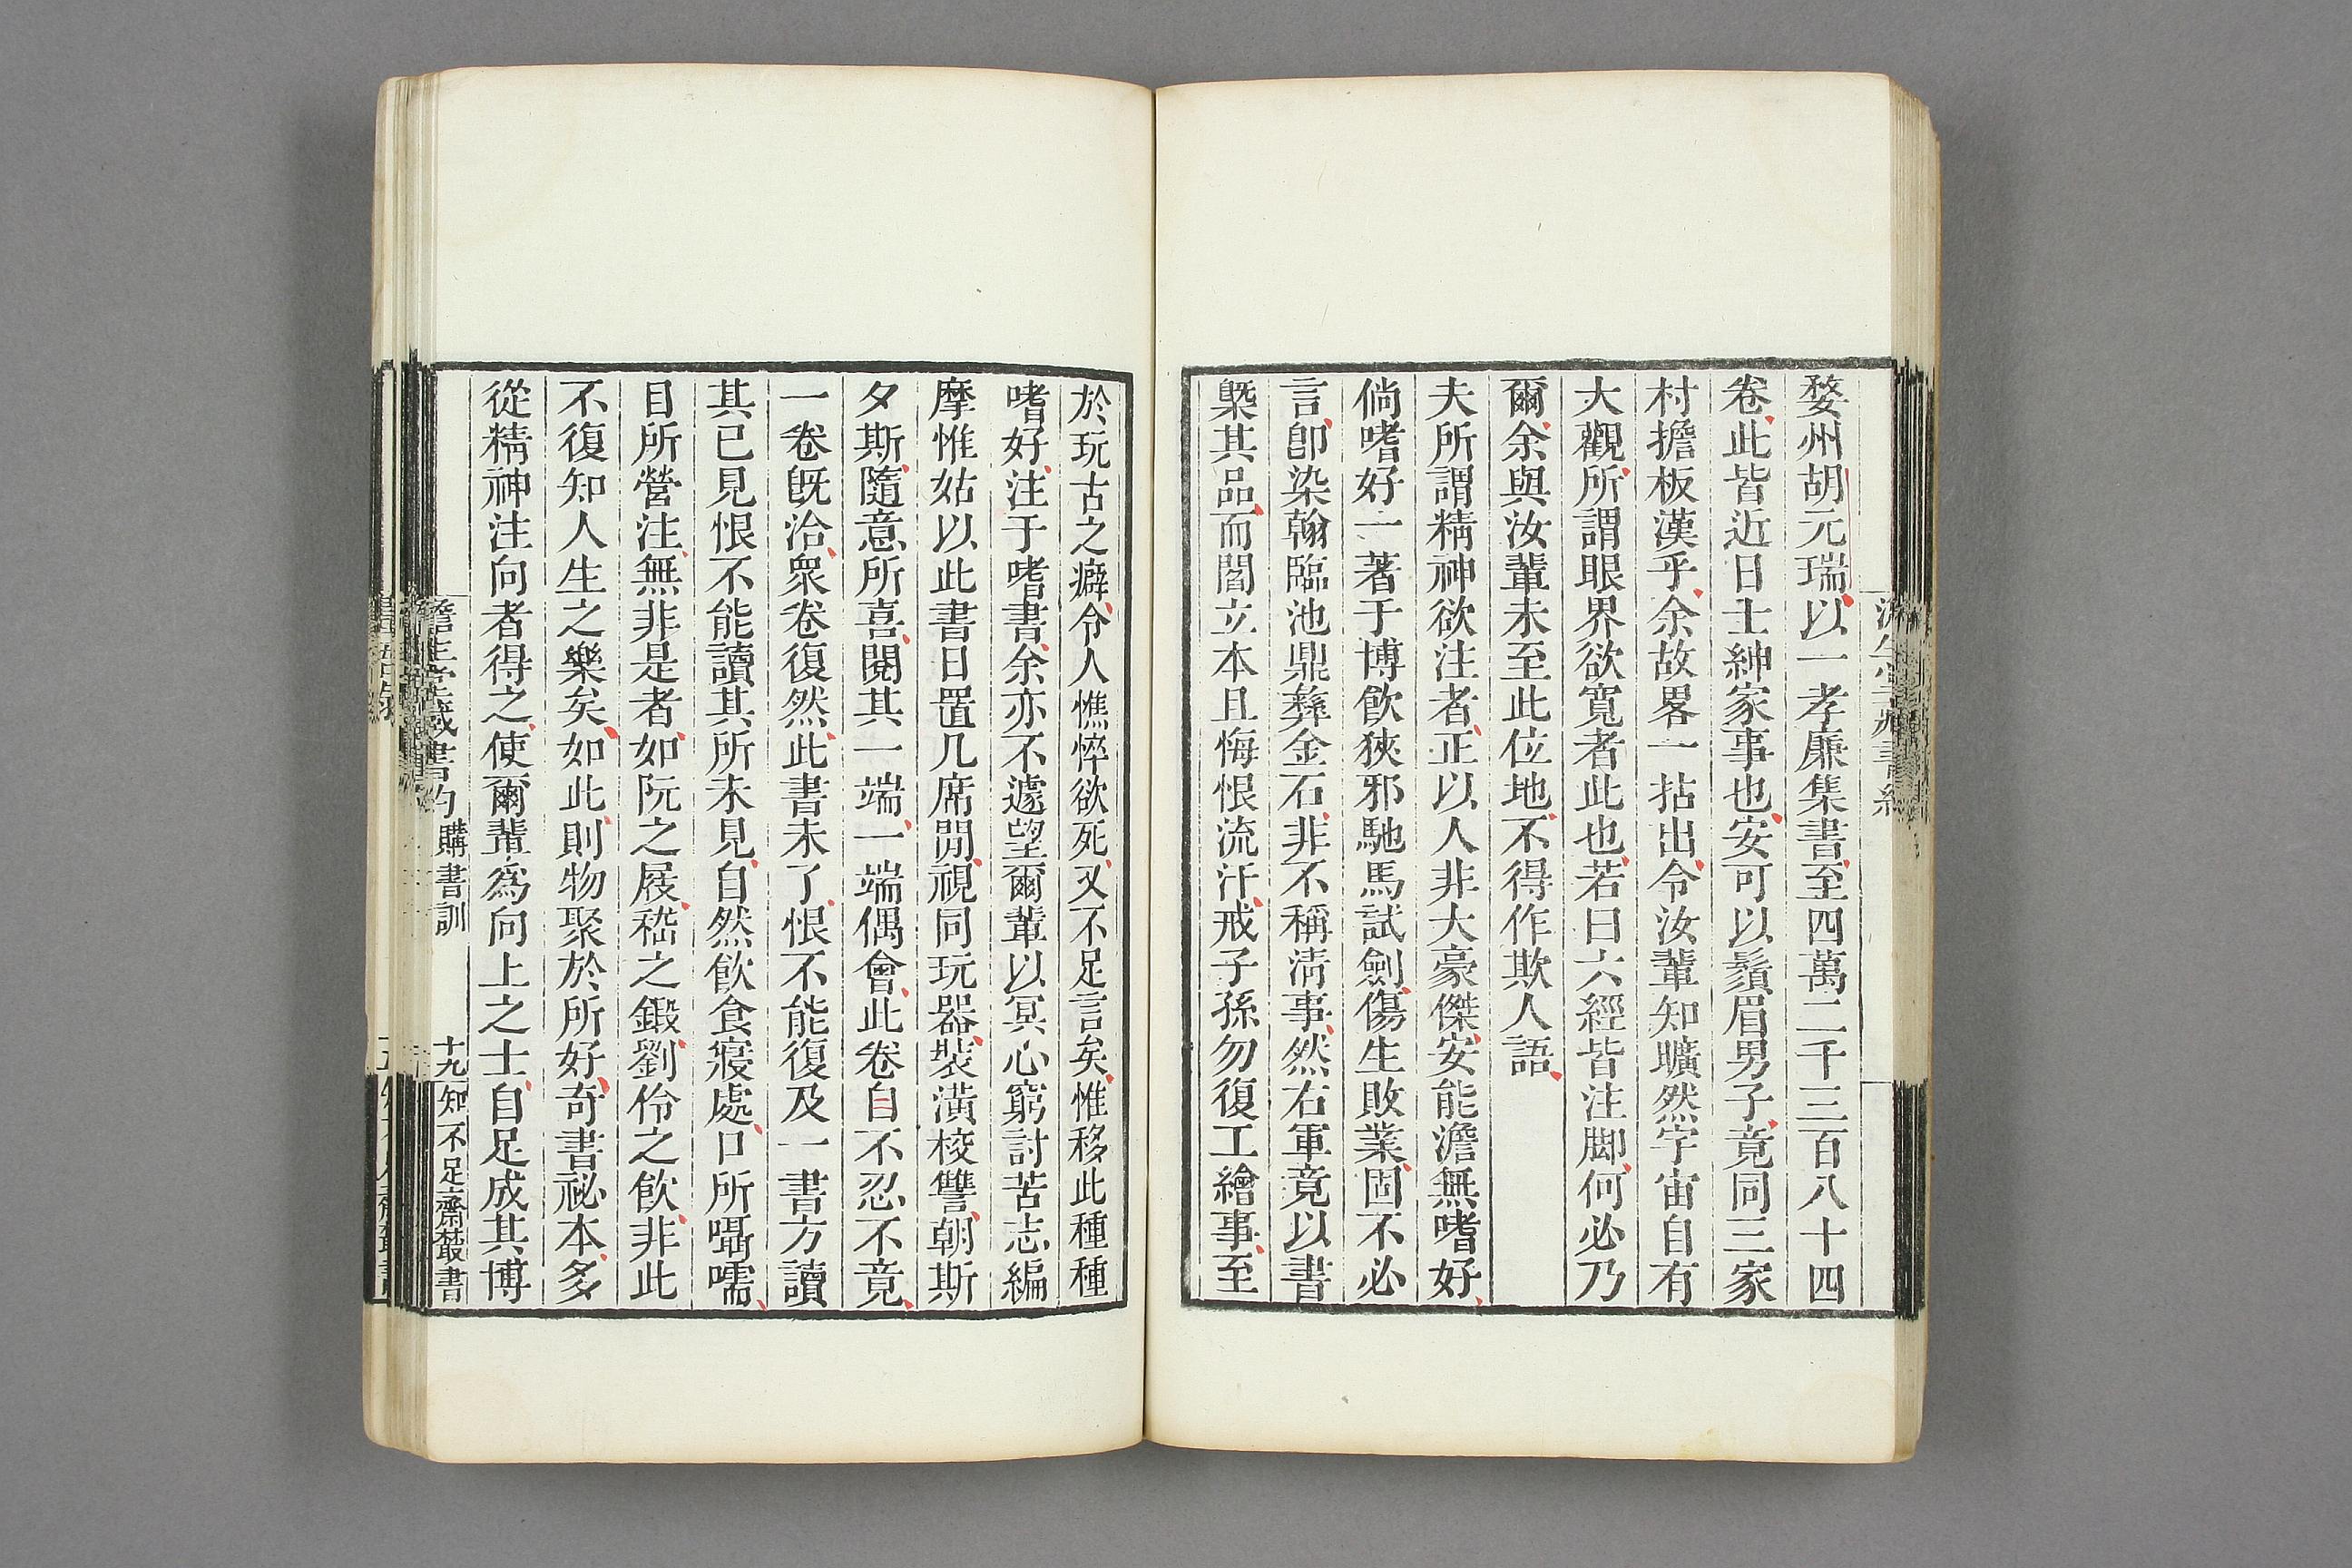 婺州胡元瑞以一孝廉集書至四萬二千三百八十四
卷此皆近日士紳家事也安可以鬚眉男子竟同三家
村擔板漢乎余故畧一拈出令汝輩知曠然宇宙自有
大觀所謂眼界欲寬者此也若曰六經皆注脚何必乃
爾余與汝輩未至此位地不得作欺人語
夫所謂精神欲注者正以人非大豪傑安能澹無嗜好
倘嗜好一著于博飲狹邪馳馬試劍傷生敗業固不必
言卽染翰臨池鼎彝金石非不稱淸事然右軍竟以書
槩其品而閻立本且悔恨流汗戒子孫勿復工繪事至
於玩古之癖令人憔悴欲死又不足言矣惟移此種種
嗜好注于嗜書余亦不遽望爾輩以冥心窮討苦志編
摩惟姑以此書日置几席間視同玩器裝潢校讐朝斯
夕斯隨意所喜閱其一端一端偶會此卷自不忍不竟
一卷旣洽衆卷復然此書未了恨不能復及一書方讀
其已見恨不能讀其所未見自然飮食寢處口所囁嚅
目所營注無非是者如阮之屐嵇之鍛劉伶之飮非此
不復知人生之樂矣如此則物聚於所好奇書祕本多
從精神注向者得之使爾輩爲向上之士自足成其博
澹生堂藏書約 購書訓 十九 知不足齋叢書